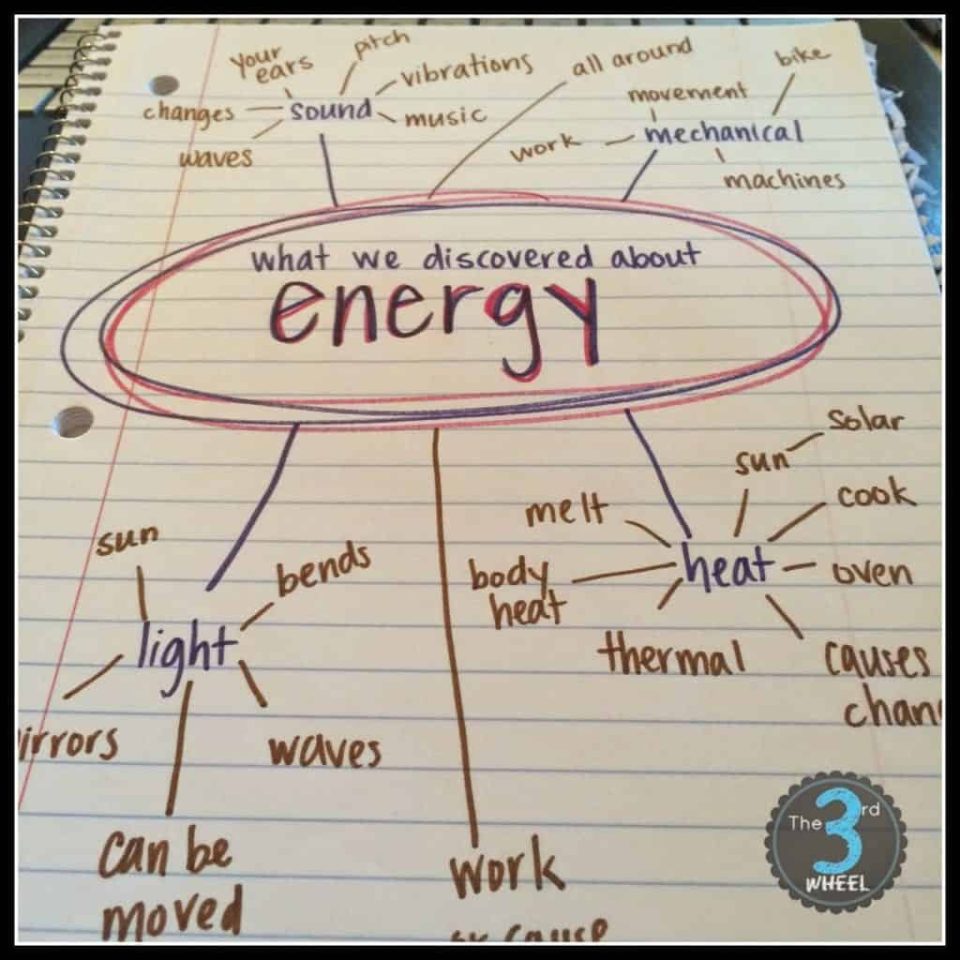 your
ears
pitch
vibrations
changes
sound
music
waves
all around
bike
movement
work
mechanical
machines
what we discovered about
energy
sun
bends
light
irrors
waves
can be
moved
work
or cause
solar
sun
melt
cook
body
heat
heat
oven
thermal
causes
chan
The 3rd
WHEEL